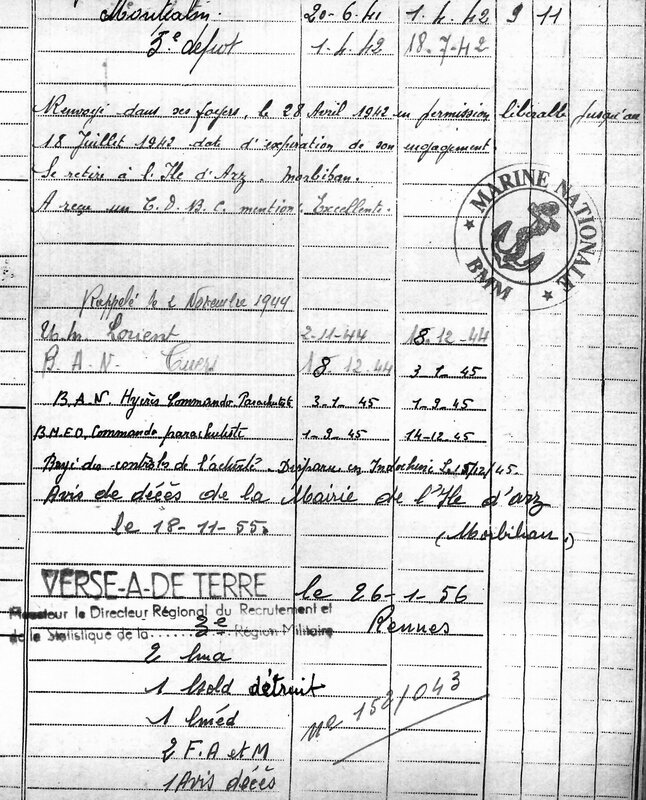 Montcalm 20-6-41 1-4-42 9 11
3e dépot 1-4-42 18-7-42
Renvoyé dans ses foyers, le 28 Avril 1942 en permission libérable jusqu'au
18 Juillet 1942 date d'expiration de son engagement.
Se retire à l'Ile d'Arz. Morbihan.
A reçu un C.D.B.C. mention: Excellente.
MARINE NATIONALE
BMM
Rappelé le 2 Novembre 1944
U.M. Lorient 2-11-44 18-12-44
B.A.N. Cuers 18-12-44 3-1-45
B.A.N. Hyères Commando Parachutiste 3-1-45 1-9-45
B.M.E.O. Commando parachutiste 1-9-45 14-12-45
Rayé des contrôles de l'activité. Disparu en Indochine le 15/12/45.
Avis de décès de la Mairie de l'Ile d'arz
le 18-11-55. (Morbihan.)
VERSE-A-DE TERRE le 26-1-56
Monsieur le Directeur Régional du Recrutement et
de la Statistique de la 3e Région Militaire Rennes
2 lma
1 lsold détruit
1 lméd No 152/043
2 F.A et M
1 Avis décès